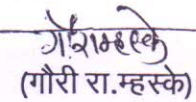 गौरा म्हस्के
(गौरी रा. म्हस्के)